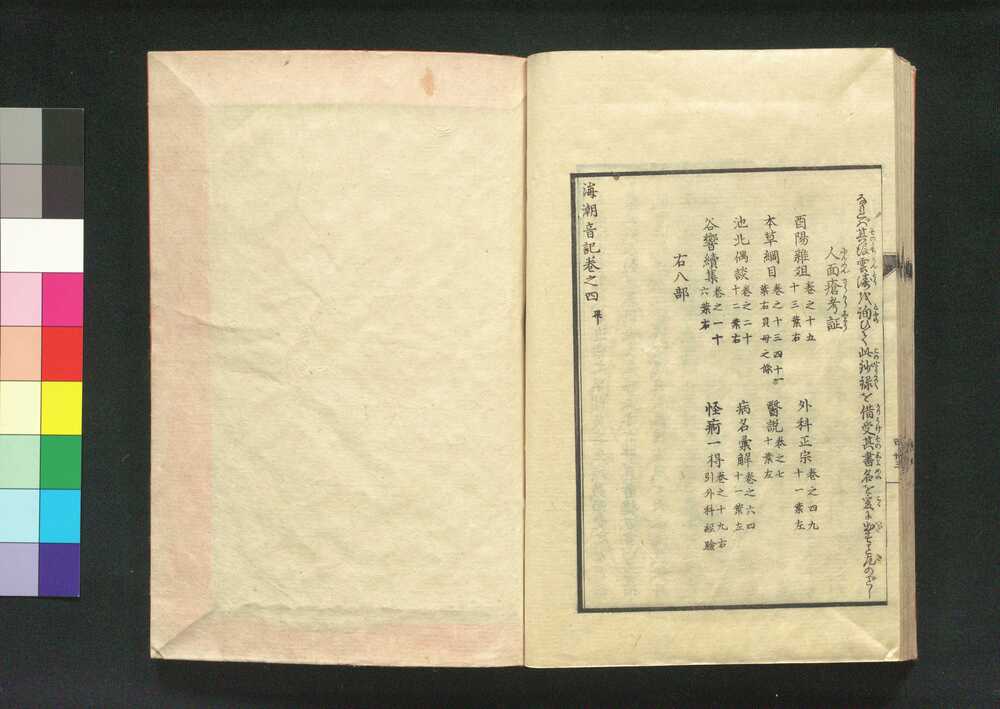 其
雲濤
詢ひて此抄録を借受其書名を爰に出す
人面瘡考証
酉陽雜俎 巻之十五 十三葉右
外科正宗 巻之四九 十一葉左
本草綱目 巻之十三四十一 葉右貝母之條
醫説 巻之七 十葉左
池北偶談 巻之二十 十二葉右
病名彙解 巻之六四 十一葉左
谷響續集 巻之一十 六葉右
怪痾一得 巻之十九右 引外科經驗
右八部
海潮音記巻之四